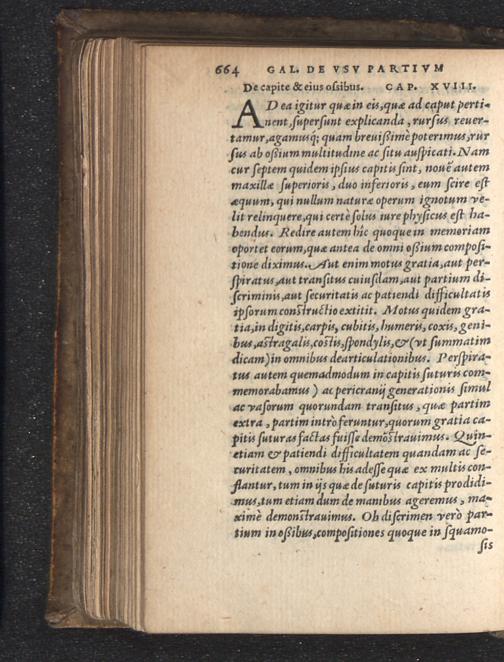 664 GAL. DE VSV PARTIVM
De capite & eius ossibus. CAP. XVIII.
AD ea igitur quæ in eis, quæ ad caput perti-
nent, supersunt explicanda, rursus reuer-
tamur, agamusq; quam breuissimè poterimus, rur
sus ab ossium multitudine ac situ auspicati. Nam
cur septem quidem ipsius capitis sint, nouē autem
maxillæ superioris, duo inferioris, eum scire est
æquum, qui nullum naturæ operum ignotum ve-
lit relinquere, qui certè solus iure physicus est ha-
bendus. Redire autem hîc quoque in memoriam
oportet eorum, quæ antea de omni ossium composi-
tione diximus. Aut enim motus gratia, aut per-
spiratus, aut transitus cuiusdam, aut partium di-
scriminis, aut securitatis ac patiendi difficultatis
ipsorum constructio extitit. Motus quidem gra-
tia, in digitis, carpis, cubitis, humeris, coxis, geni-
bus, astragalis, costis, spondylis, & (vt summatim
dicam) in omnibus dearticulationibus. Perspira-
tus autem quemadmodum in capitis suturis com-
memorabamus) ac pericranij generationis simul
ac vasorum quorundam transitus, quæ partim
extra, partim intrò feruntur, quorum gratia ca-
pitis suturas factas fuisse demōstrauimus. Quin-
etiam & patiendi difficultatem quandam ac se-
curitatem, omnibus his adesse quæ ex multis con-
flantur, tum in ijs quæ de suturis capitis prodidi-
mus, tum etiam dum de manibus ageremus, ma-
ximè demonstrauimus. Ob discrimen verò par-
tium in ossibus, compositiones quoque in squamo-
sis